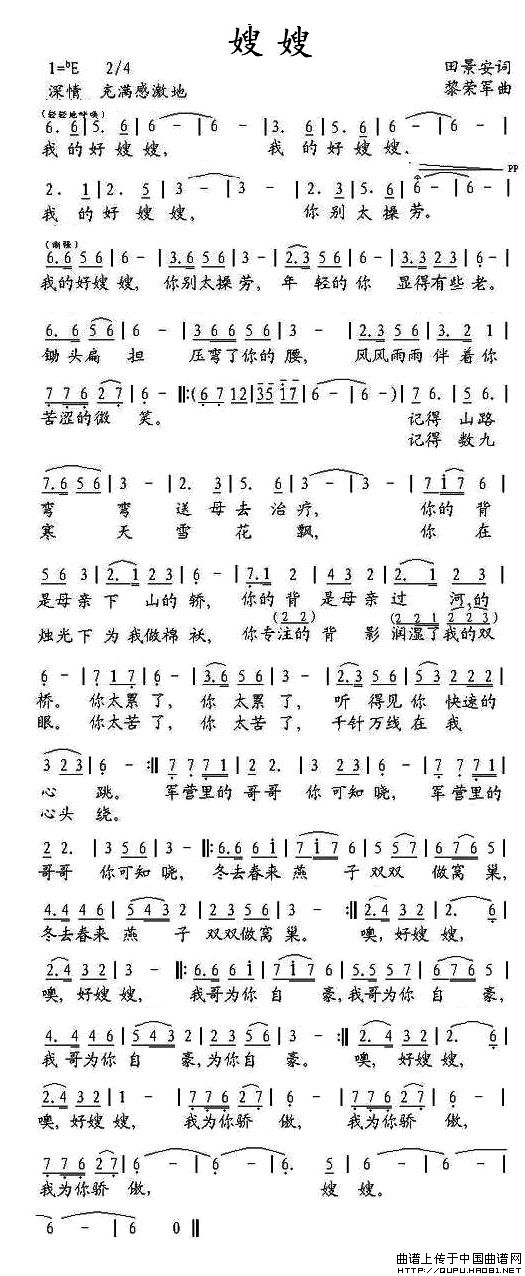 嫂 嫂
1=♭E 2/4 田景安词
深情 充满感激地 黎荣军曲
(轻轻地呼唤)
6. 6 | 5. 6 | 6 - | 6 - | 3. 6 | 5. 6 | 6 - | 6 - |
我 的 好 嫂 嫂, 我 的 好 嫂 嫂、
PP
2. 1 | 2. 5 | 3 - | 3 - | 2. 3 | 5. 6 | 6 - | 6 - |
我 的 好 嫂 嫂, 你 别 太 操 劳。
6. 6 5 6 | 6 - | 3. 6 5 6 | 3 - | 2. 3 5 6 | 6 - | 3. 3 2 3 | 6 - |
我的好嫂 嫂, 你别太操 劳, 年 轻的 你 显得有些 老。
6. 6 5 6 | 6 - | 3 6 6 5 6 | 3 - | 2. 3 5 5 | 2. 3 2 1 |
锄 头 扁 担 压弯了你的 腰, 风风雨雨 伴 着 你
7 7 6 2 7 | 6 - ‖: (6 7 12 | 35 17 | 6 - | 6 - ) | 7 6. | 5 6. |
苦涩的微 笑。 记得 山路
记得 数九
7. 6 5 6 | 3 - | 2. 3 | 5. 6 | 3 - | 3 - | 7 1 7 6 |
弯 弯 送 母 去 治 疗, 你的 背
寒 天 雪 花 飘, 你 在
5 6 3 | 2. 1 2 3 | 6 - | 7. 1 2 | 4 3 2 | 2. 1 2 3 |
是母亲 下 山的 轿, 你的 背 是母亲 过 河,的
(2 2) (2 2 1 2 2 3)
烛光下 为 我做棉 袄, 你专注的 背 影 润湿了我的双
6 - | 7 1 1 7 | 6 - | 3. 5 5 6 | 3 - | 2. 3 5 6 | 5 3 2 2 2 |
桥。 你太累 了, 你 太累 了, 听 得见 你 快速的
眼。 你太苦 了, 你 太苦 了, 千针万线 在 我
3 2 3 | 6 - :‖ 7 7 7 1 | 2 2. | 3 2 3 | 6 - | 7 7 7 1 |
心 跳。 军营里的 哥哥 你 可知 晓, 军营里的
心头 绕。
2 2. | 3 5 6 | 3 - ‖: 6. 6 6 1 | 7 1 7 6 | 5 5 7 | 6 7 6 5 |
哥哥 你可知 晓, 冬去春来 燕 子 双双 做窝 巢,
4. 4 4 6 | 5 4 3 2 | 2 3 5 6 | 3 - :‖ 2. 4 3 2 | 2. 6 |
冬去春来 燕 子 双双做窝 巢。 噢,好嫂 嫂,
2. 4 3 2 | 3 - ‖: 6. 6 6 1 | 7 1 7 6 | 5. 5 5 7 | 6 7 6 5 |
噢,好嫂 嫂, 我哥为你 自 豪,我哥为你 自 豪,
4. 4 4 6 | 5 4 3 2 | 2 5 6 | 3 - :‖ 2. 4 3 2 | 2. 6 |
我 哥为你 自 豪,为你自 豪。 噢,好嫂 嫂,
2. 4 3 2 | 1 - | 7 7 6 2 7 | 6 - | 7 7 6 2 7 | 6 - |
噢,好嫂 嫂, 我为你骄 傲, 我为你骄 傲,
7 7 6 2 7 | 6 - | 6 - | 6 - | 6. 6 | 6 - | 6 - |
我为你骄 傲, 嫂 嫂。
6 - | 6 0 ‖
曲谱上传于中国曲谱网
HTTP://QUPU.HAO81.NET